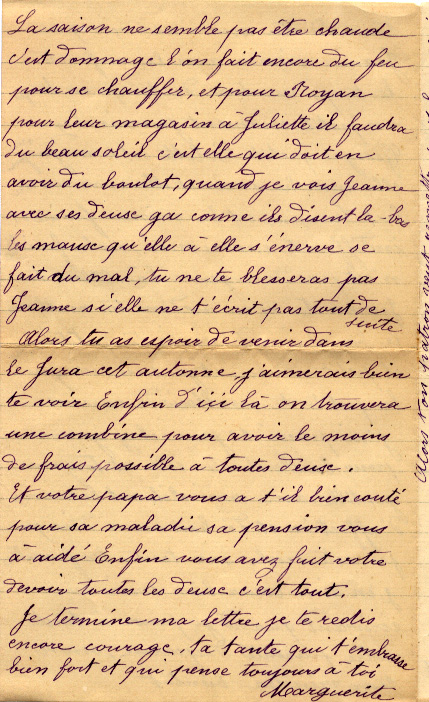 La saison ne semble pas être chaude
c'est dommage l'on fait encore du feu
pour se chauffer, et pour Royan
pour leur magasin à Juliette il faudra
du beau soleil c'est elle qui doit en
avoir du boulot, quand je vois Jeanne
avec ses deuse ga conne ils disent la-bas
les mause qu'elle à elle s'énerve se
fait du mal, tu ne te blesseras pas
Jeanne si elle ne t'écrit pas tout de
suite
Alors tu as espoir de venir dans
le Jura cet autonne j'aimerais bien
te voir Enfin d'ici là on trouvera
une combine pour avoir le moins
de frais possible à toutes deuse.
Et votre papa vous a t'il bien couté
pour sa maladie sa pension vous
à aidé Enfin vous avez fait votre
devoir toutes les deuse c'est tout.
Je termine ma lettre je te redis
encore courage, ta tante qui t'embrasse
bien fort et qui pense toujours à toi
Marguerite
Alors ton patron